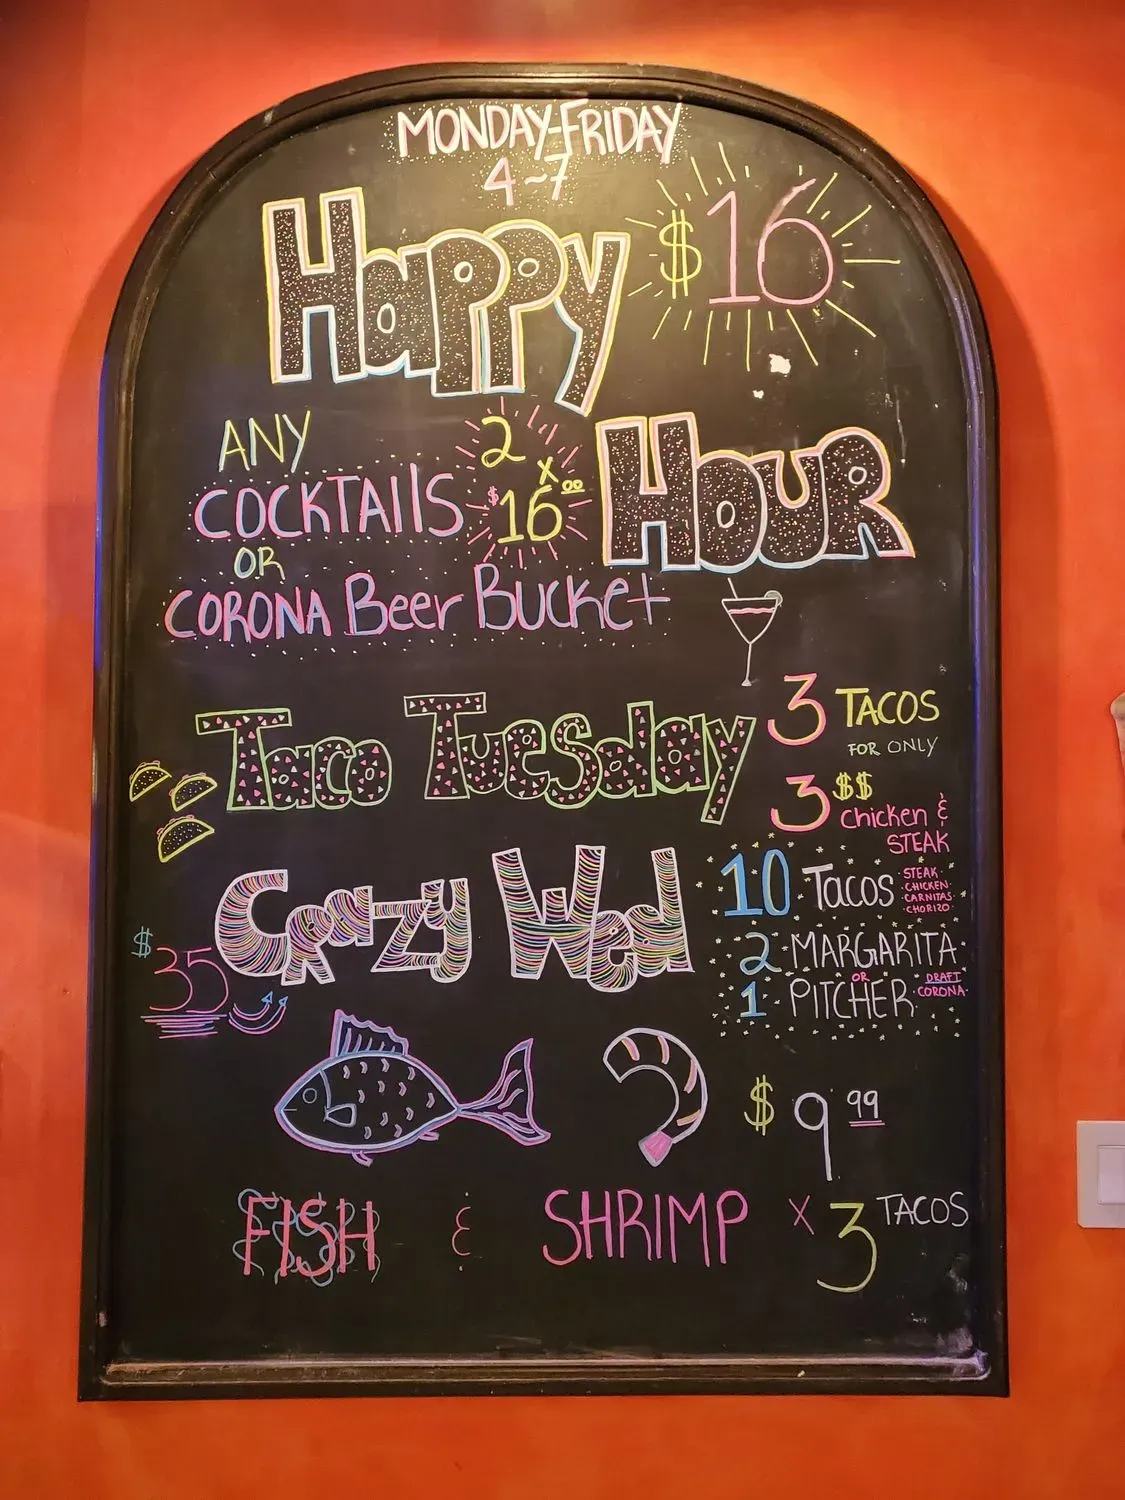 MONDAY-FRIDAY
4~7
Happy $16
Hour
ANY
COCKTAIlS
2 x $16.00
OR
CORONA Beer Bucket
Taco Tuesday
3 TACOS
FOR ONLY
3 $$
chicken &
STEAK
Crazy Wed
$35
10 Tacos
STEAK
CHICKEN
CARNITAS
CHORIZO
2 MARGARITA
OR
1 PITCHER
DRAFT
CORONA
$9.99
FISH & SHRIMP X 3 TACOS